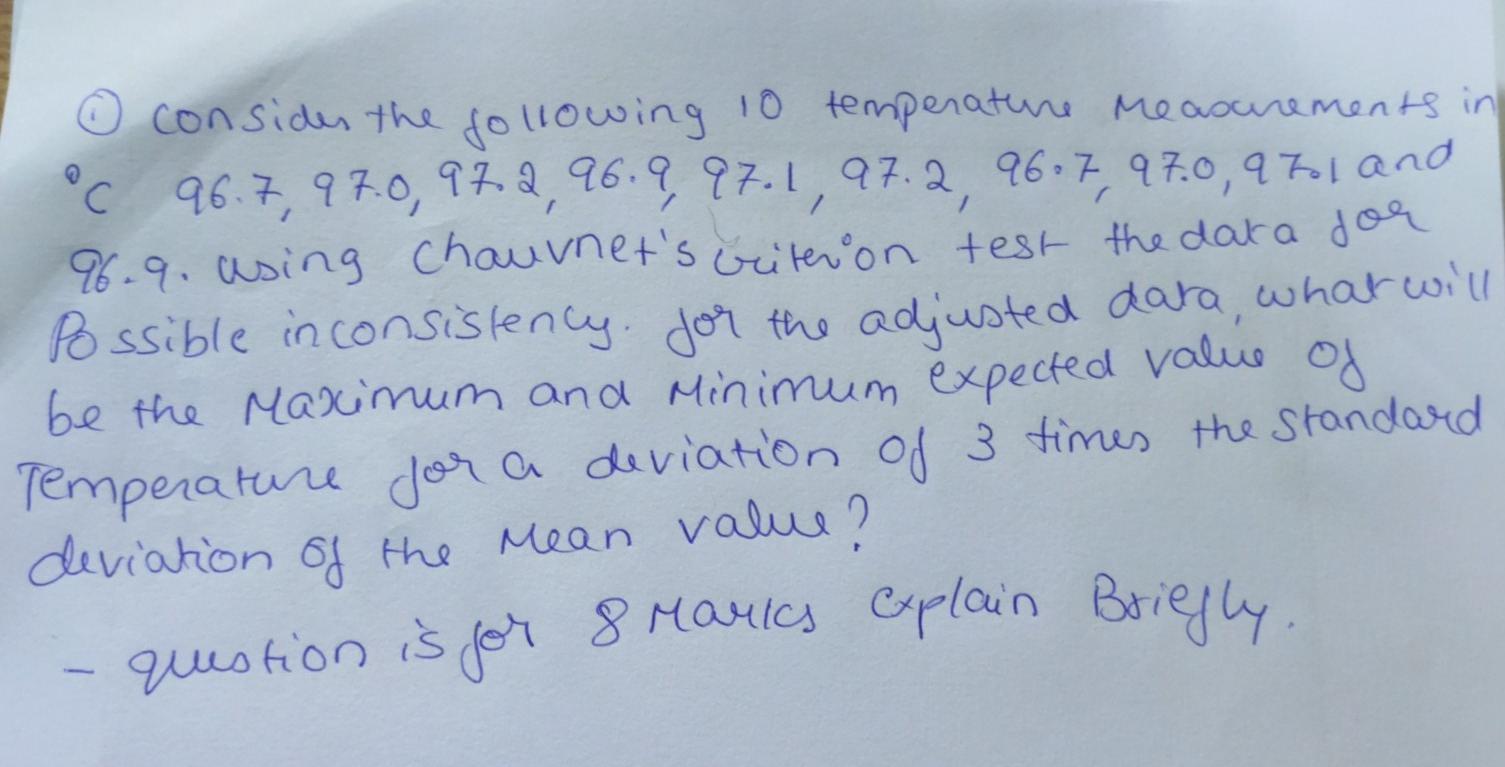 ① consider the following 10 temperature Measurements in
°C 96.7, 97.0, 97.2, 96.9, 97.1, 97.2, 96.7, 97.0, 97.1 and
96.9. using Chauvnet's criterion test the data for
Possible inconsistency. for the adjusted data, what will
be the Maximum and Minimum expected value of
Temperature for a deviation of 3 times the standard
deviation of the Mean value?
- question is for 8 Marks explain Briefly.